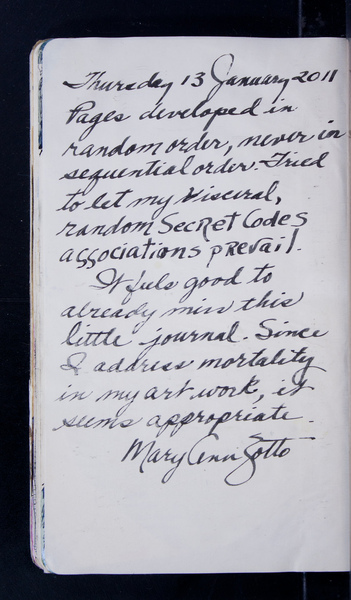 Thursday 13 January 2011
Pages developed in
random order, never in
sequential order. Tried
to let my visceral,
random Secret Codes
associations prevail.
It feels good to
already miss this
little journal. Since
I address mortality
in my art work, it
seems appropriate.
Mary Ann Zotto